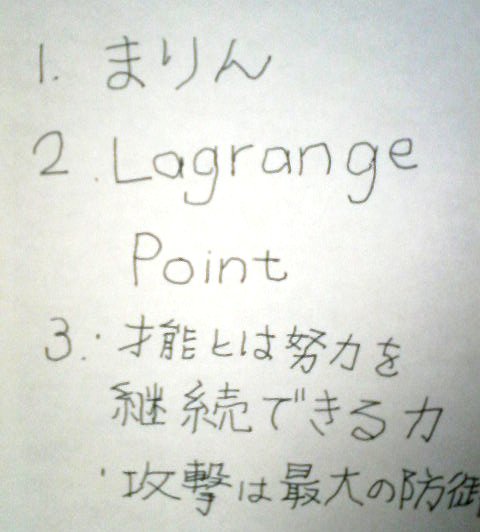 1. まりん
2. Lagrange
Point
3. ・才能とは努力を
継続できる力
・攻撃は最大の防御